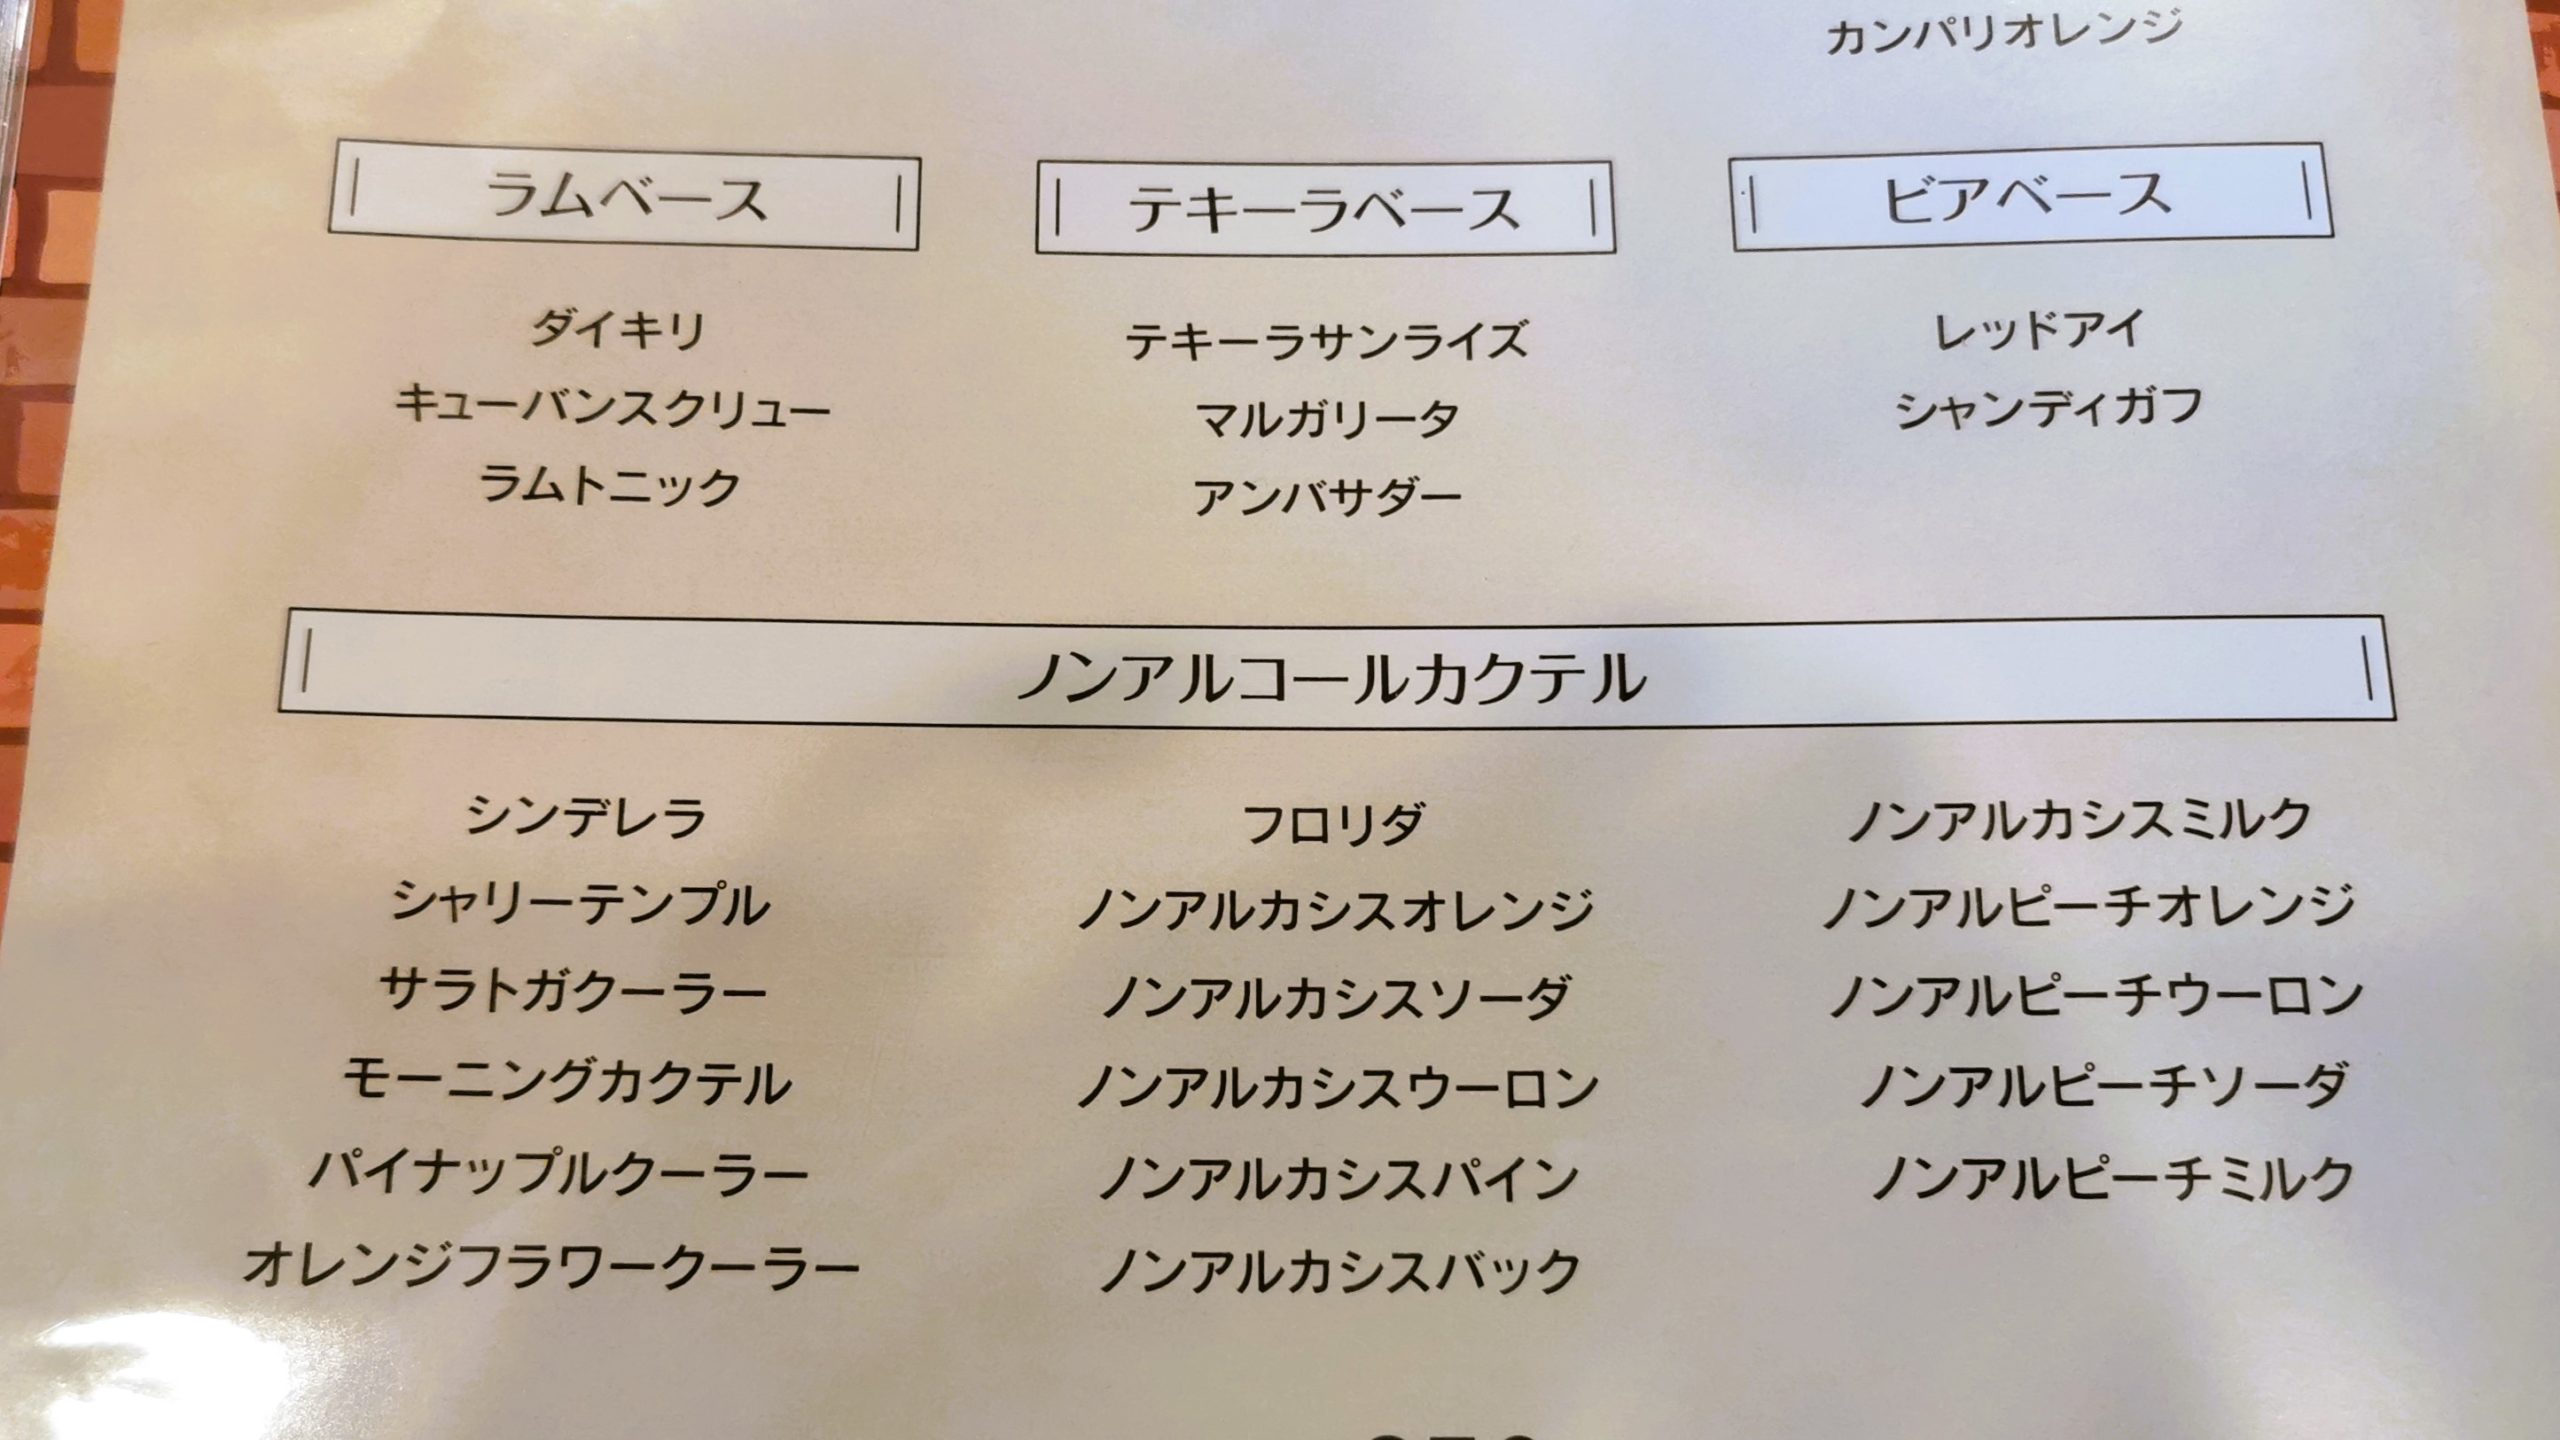 カンパリオレンジ
ラムベース
ダイキリ
キューバンスクリュー
ラムトニック
テキーラベース
テキーラサンライズ
マルガリータ
アンバサダー
ビアベース
レッドアイ
シャンディガフ
ノンアルコールカクテル
シンデレラ
シャリーテンプル
サラトガクーラー
モーニングカクテル
パイナップルクーラー
オレンジフラワークーラー
フロリダ
ノンアルカシスオレンジ
ノンアルカシスソーダ
ノンアルカシスウーロン
ノンアルカシスパイン
ノンアルカシスバック
ノンアルカシスミルク
ノンアルピーチオレンジ
ノンアルピーチウーロン
ノンアルピーチソーダ
ノンアルピーチミルク